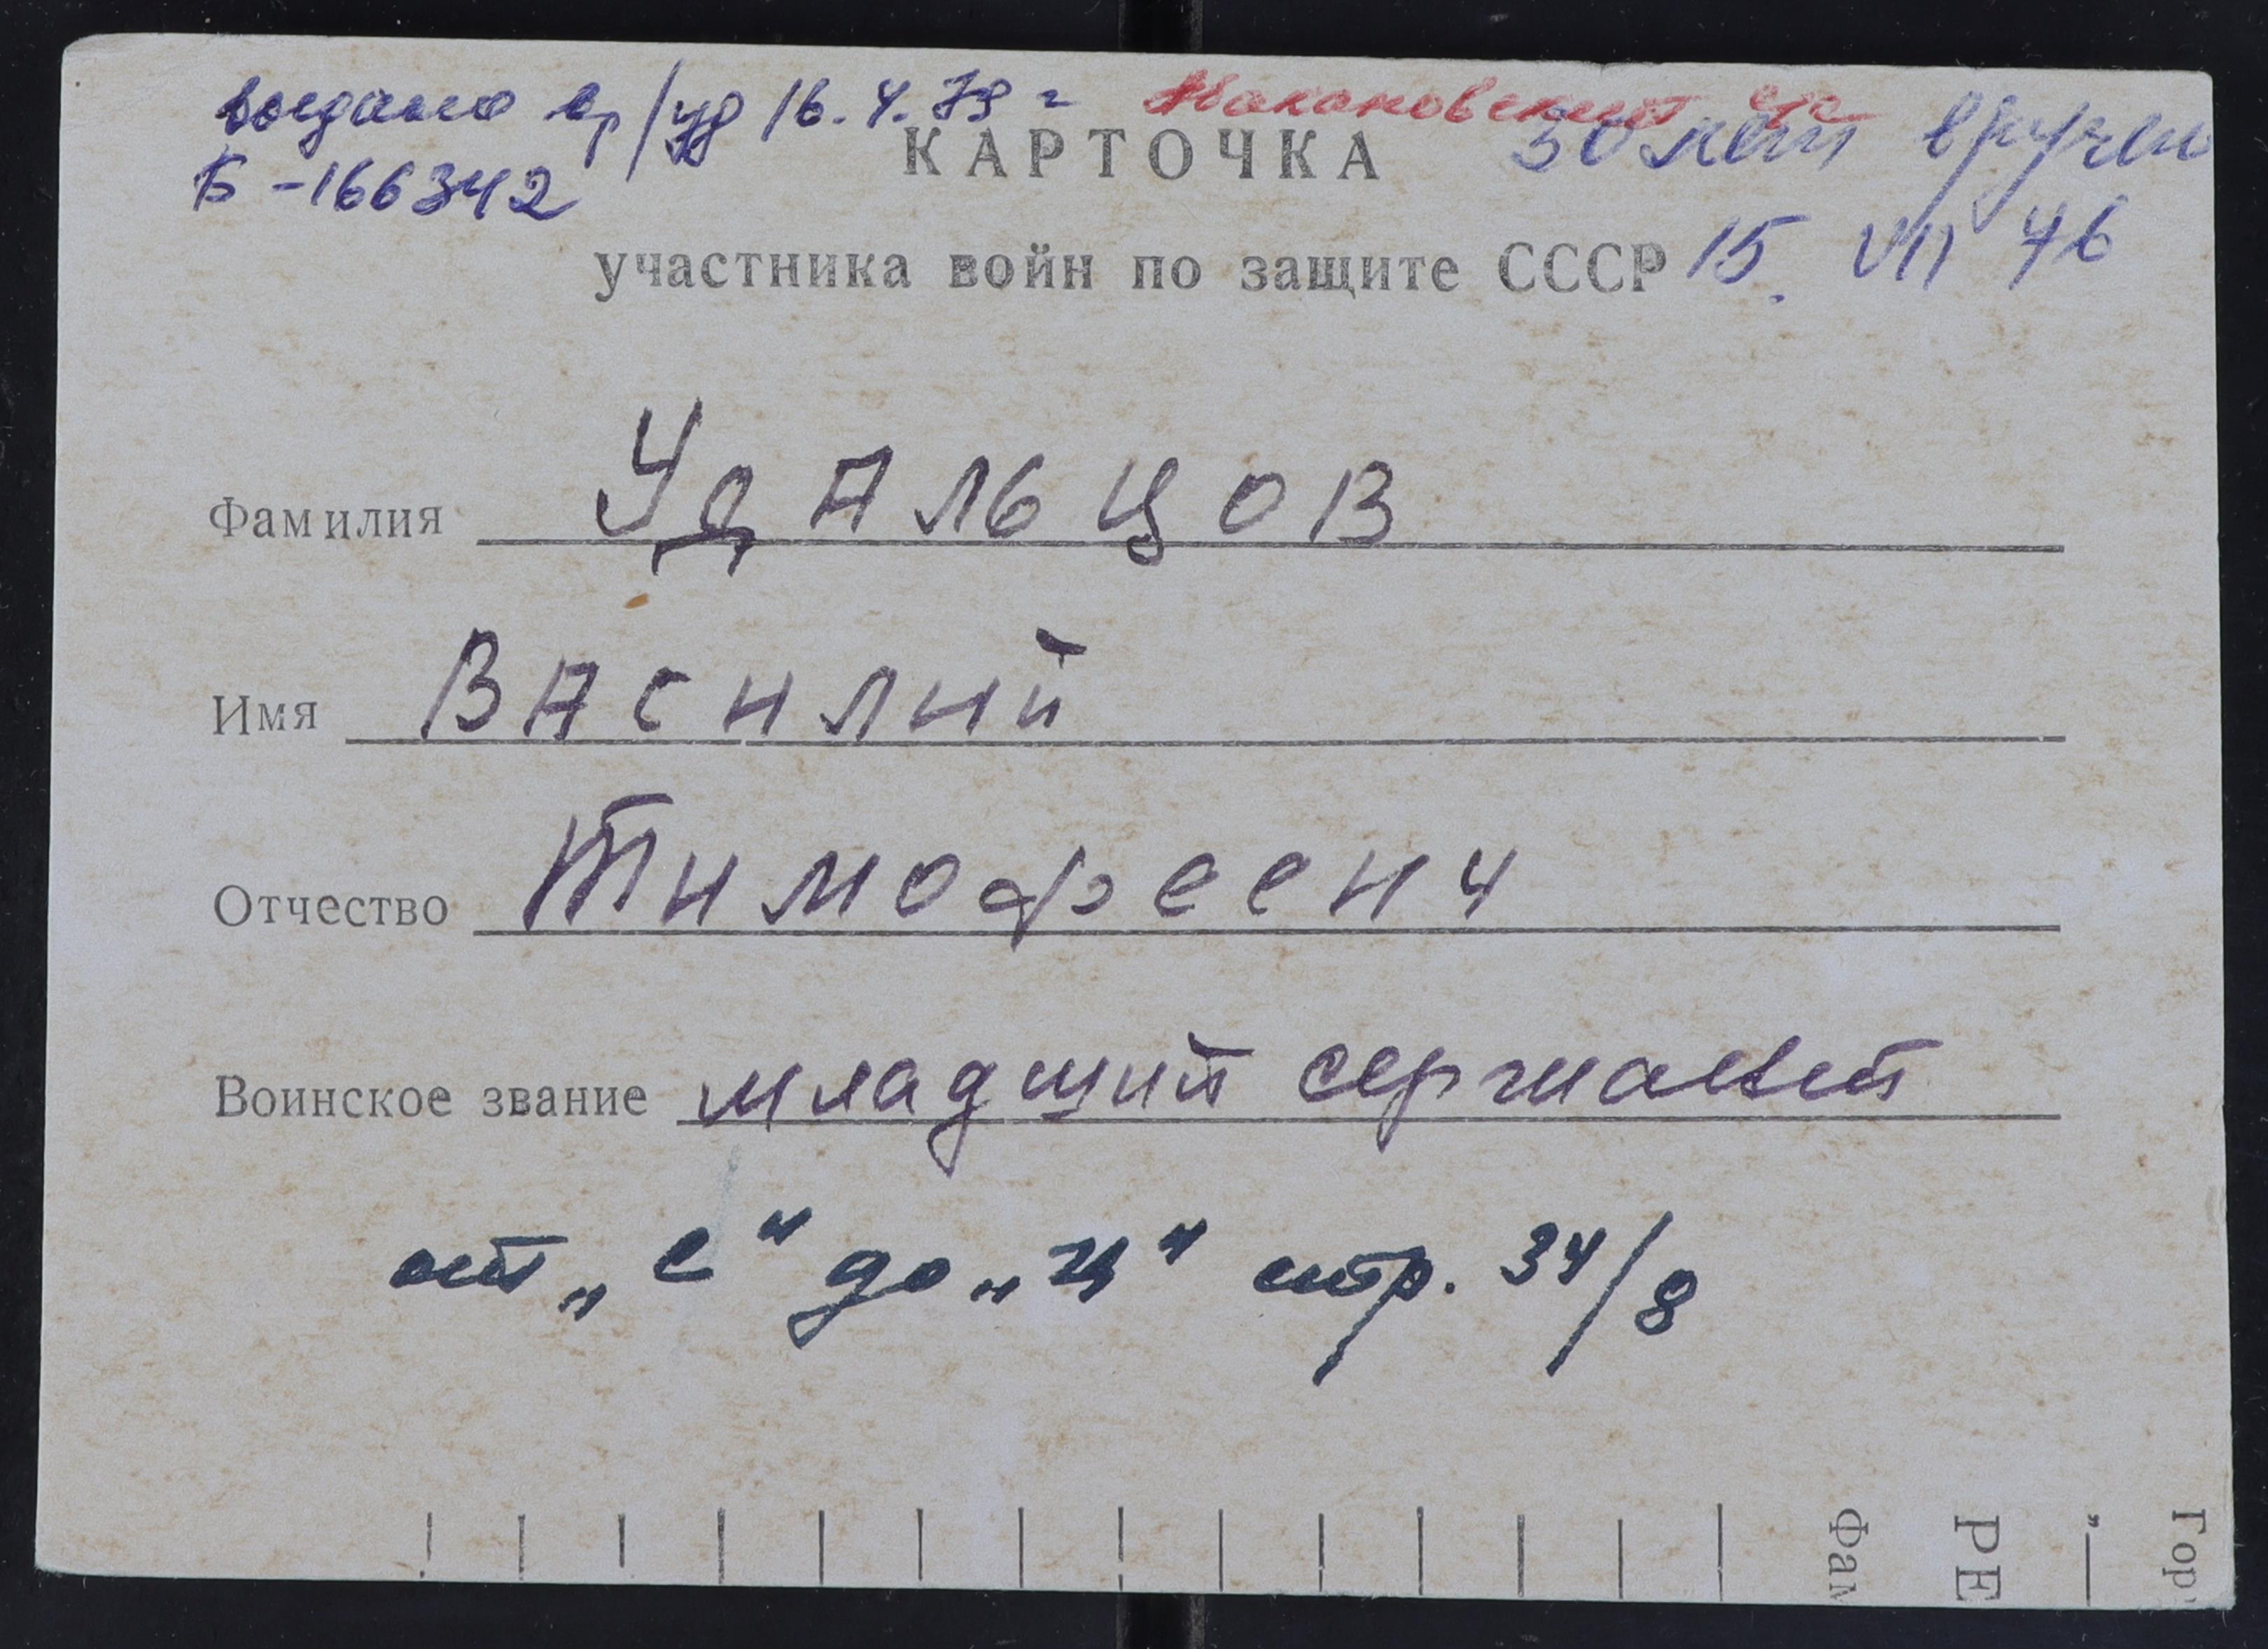 выдано вр/уд 16.4.79 г
Б-166342
30 лет вручен
КАРТОЧКА
участника войн по защите СССР
15. VII 76
Фамилия Удальцов
Имя Василий
Отчество Тимофеевич
Воинское звание младший сержант
от „С“ до „Ц“ стр. 34/8
Фам
РЕ
„
Гор